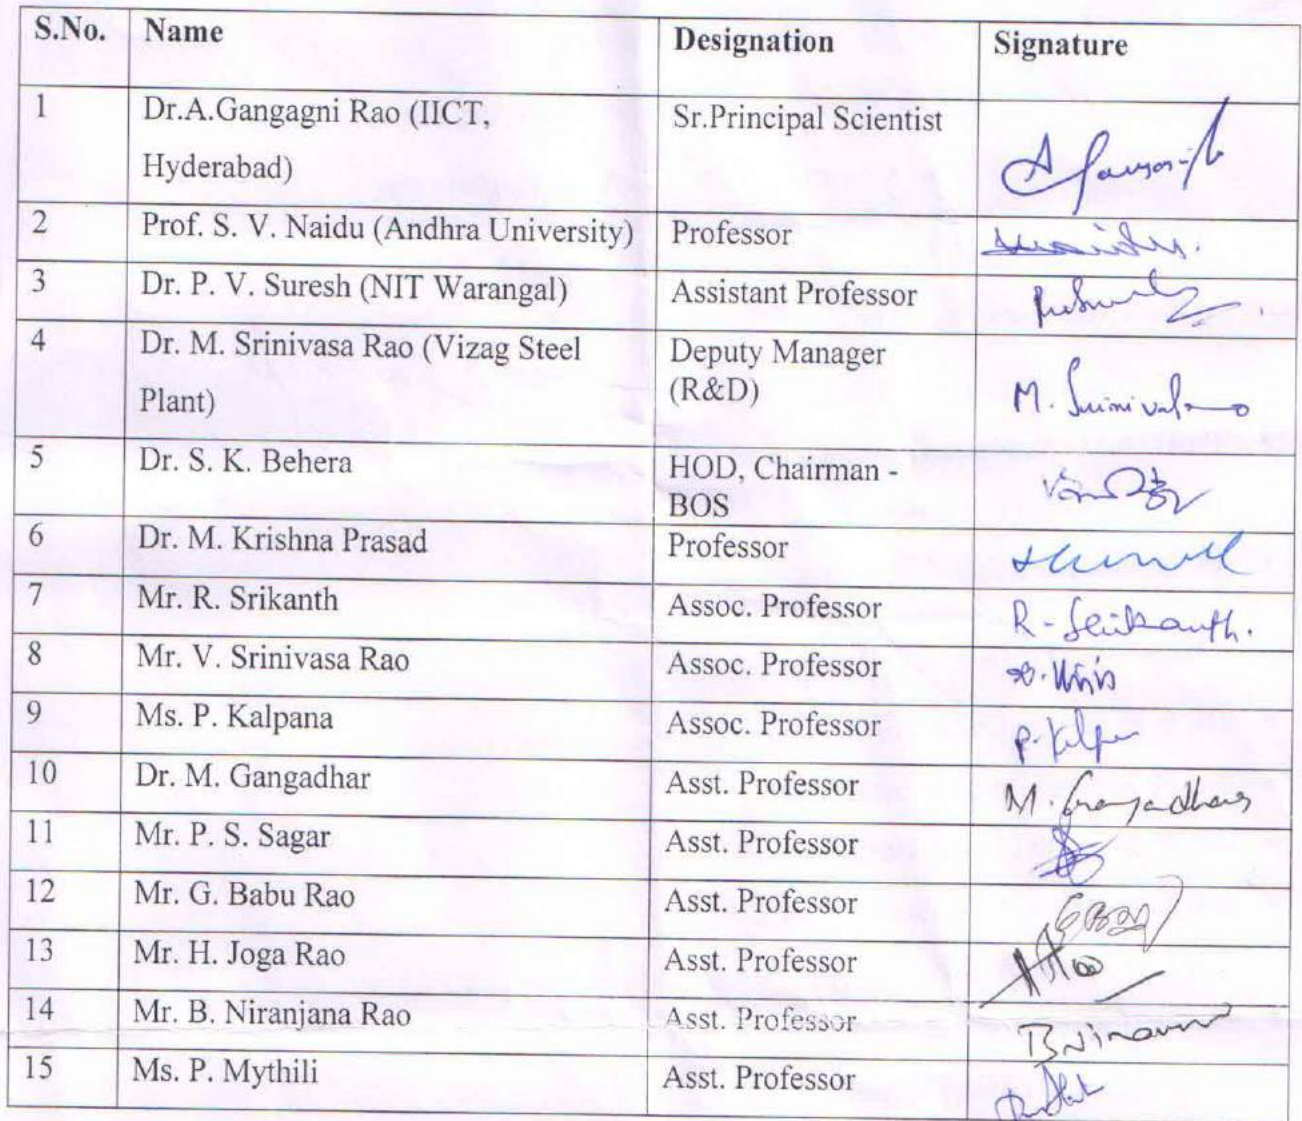 S.No. Name Designation Signature
1 Dr.A.Gangagni Rao (IICT, Sr.Principal Scientist
Hyderabad)
2 Prof. S. V. Naidu (Andhra University) Professor
3 Dr. P. V. Suresh (NIT Warangal) Assistant Professor
4 Dr. M. Srinivasa Rao (Vizag Steel Deputy Manager
Plant) (R&D) M.
5 Dr. S. K. Behera HOD, Chairman -
BOS
6 Dr. M. Krishna Prasad Professor
7 Mr. R. Srikanth Assoc. Professor R - Srikanth.
8 Mr. V. Srinivasa Rao Assoc. Professor
9 Ms. P. Kalpana Assoc. Professor
10 Dr. M. Gangadhar Asst. Professor M. Gangadhar
11 Mr. P. S. Sagar Asst. Professor
12 Mr. G. Babu Rao Asst. Professor
13 Mr. H. Joga Rao Asst. Professor
14 Mr. B. Niranjana Rao Asst. Professor
15 Ms. P. Mythili Asst. Professor